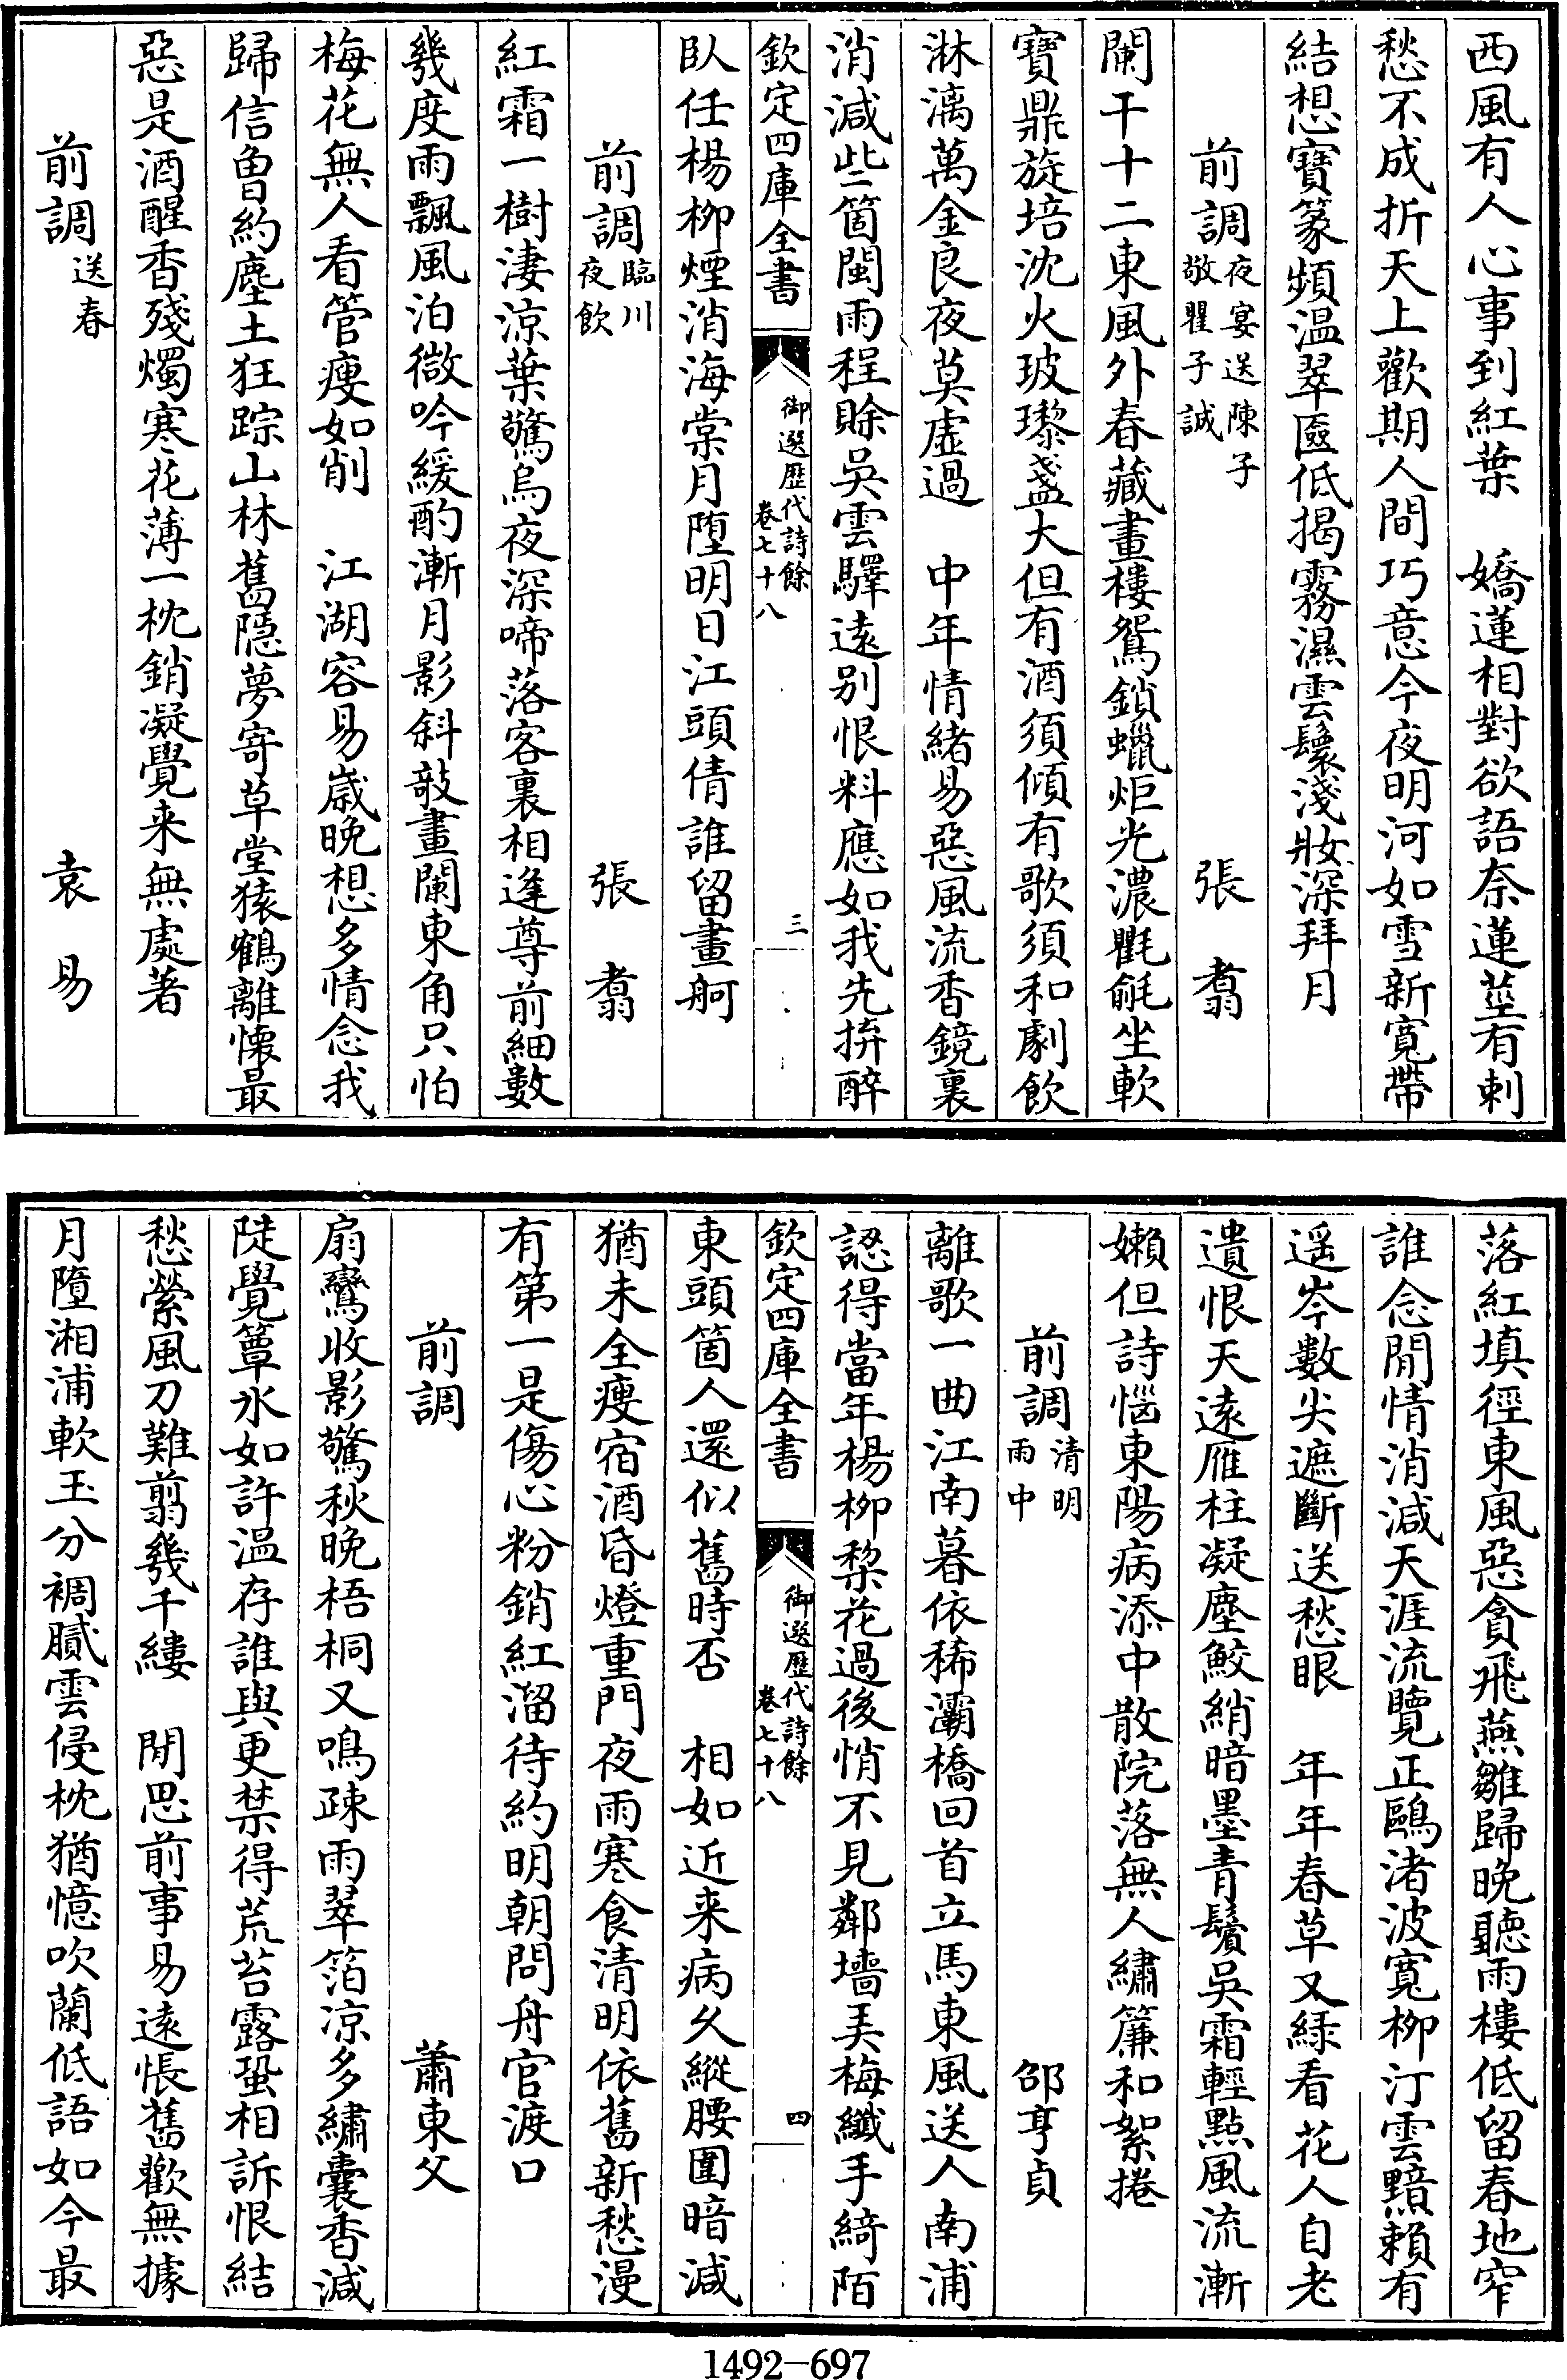 西風有人心事到紅葉　嬌蓮相對欲語奈蓮莖有刺
愁不成折天上歡期人間巧意今夜明河如雪新寬帶
結想寶篆頻溫翠匳低揭霧濕雲鬟淺妝深拜月
前調夜宴送陳子敬瞿子誠　張翥
闌干十二東風外春藏畫樓鴛鎖蠟炬光濃氍毹坐軟
寶鼎旋培沈火玻瓈盞大但有酒須傾有歌須和劇飲
淋漓萬金良夜莫虛過　中年情緒易惡風流香鏡裏
消減些箇閩雨程賒吳雲驛遠別恨料應如我先拚醉
欽定四庫全書　御選歷代詩餘卷七十八　三
臥任楊柳煙消海棠月墮明日江頭倩誰留畫舸
前調臨川夜飲　張翥
紅霜一樹淒涼葉驚烏夜深啼落客裏相逢尊前細數
幾度雨飄風泊微吟緩酌漸月影斜敧畫闌東角只怕
梅花無人看管瘦如削　江湖容易歲晚想多情念我
歸信曾約塵土狂踪山林舊隱夢寄草堂猿鶴離懷最
惡是酒醒香殘燭寒花薄一枕銷凝覺来無處著
前調送春　袁易
落紅填徑東風惡貪飛燕雛歸晚聽雨樓低留春地窄
誰念閒情消減天涯流覽正鷗渚波寬柳汀雲黯賴有
遥岑數尖遮斷送愁眼　年年春草又緑看花人自老
遺恨天遠雁柱凝塵鮫綃暗墨青鬢吳霜輕點風流漸
嬾但詩惱東陽病添中散院落無人繡簾和絮捲
前調清明雨中　邵亨貞
離歌一曲江南暮依稀灞橋回首立馬東風送人南浦
認得當年楊柳梨花過後悄不見鄰墻美梅纖手綺陌
欽定四庫全書　御選歷代詩餘卷七十八　四
東頭箇人還似舊時否　相如近来病久縱腰圍暗減
猶未全瘦宿酒昏燈重門夜雨寒食清明依舊新愁漫
有第一是傷心粉銷紅溜待約明朝問舟官渡口
前調　蕭東父
扇鸞收影驚秋晚梧桐又鳴疎雨翠箔凉多繡囊香減
陡覺簟氷如許溫存誰與更禁得荒苔露蛩相訴恨結
愁縈風刀難翦幾千縷　閒思前事易遠悵舊歡無據
月墮湘浦軟玉分裯膩雲侵枕猶憶吹蘭低語如今最
1492-697